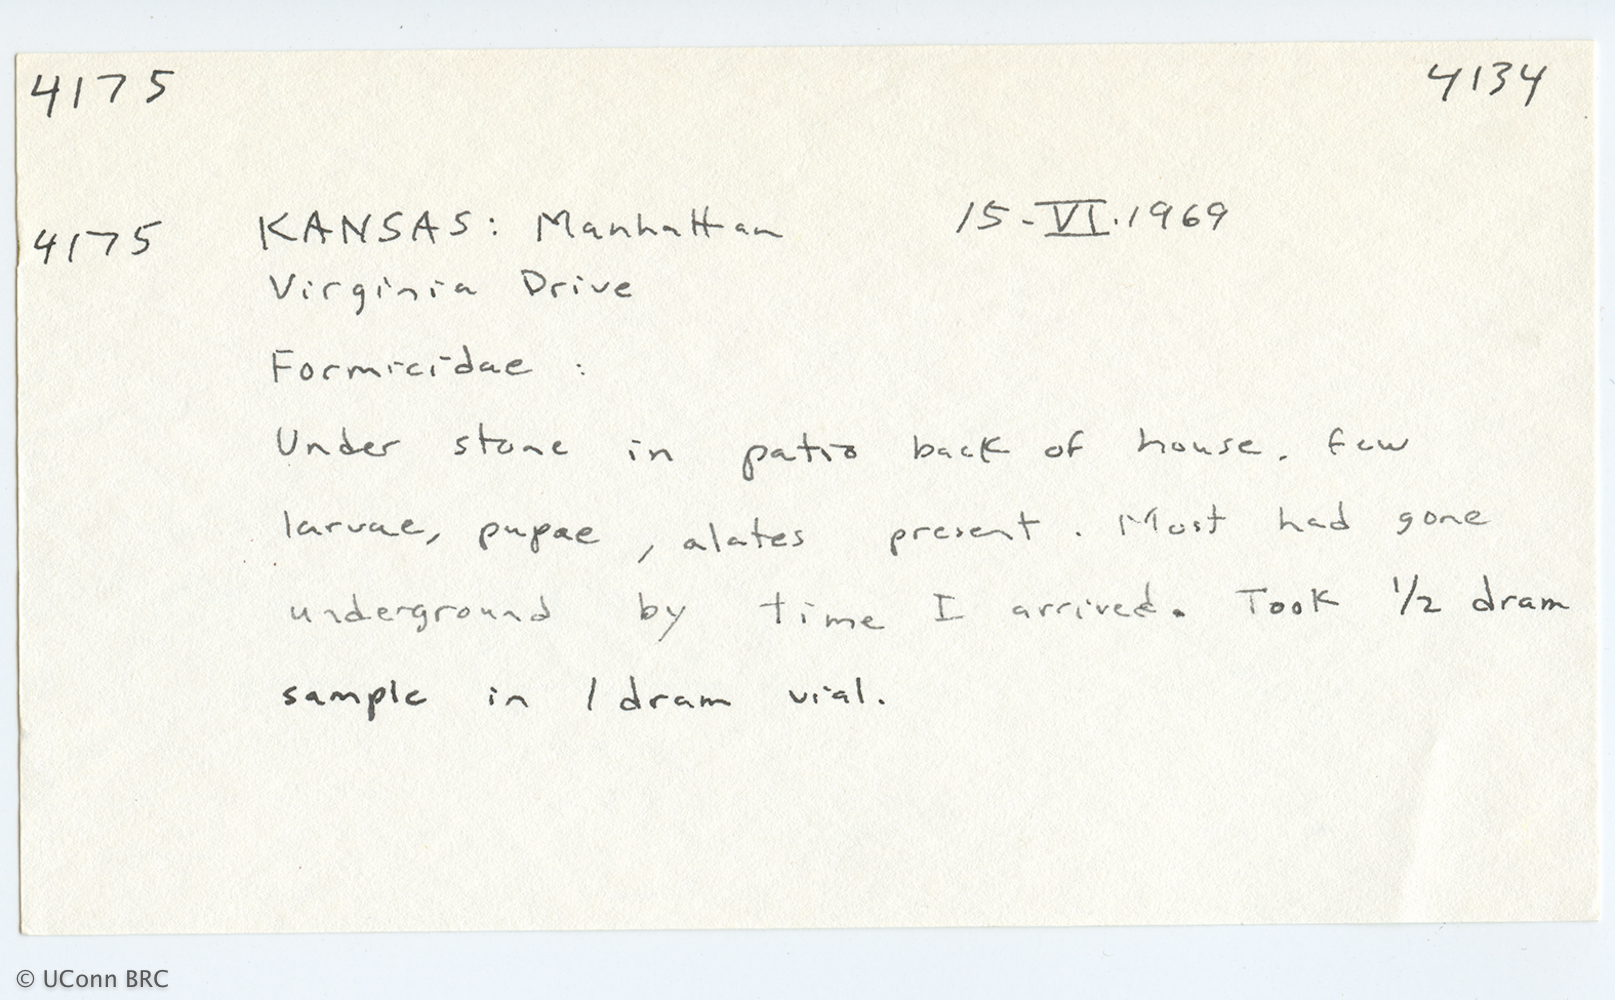 4175 4134
4175 KANSAS: Manhattan 15-VI.1969
Virginia Drive
Formicidae :
Under stone in patio back of house. Few
larvae, pupae, alates present. Most had gone
underground by time I arrived. Took 1/2 dram
sample in 1 dram vial.
© UConn BRC